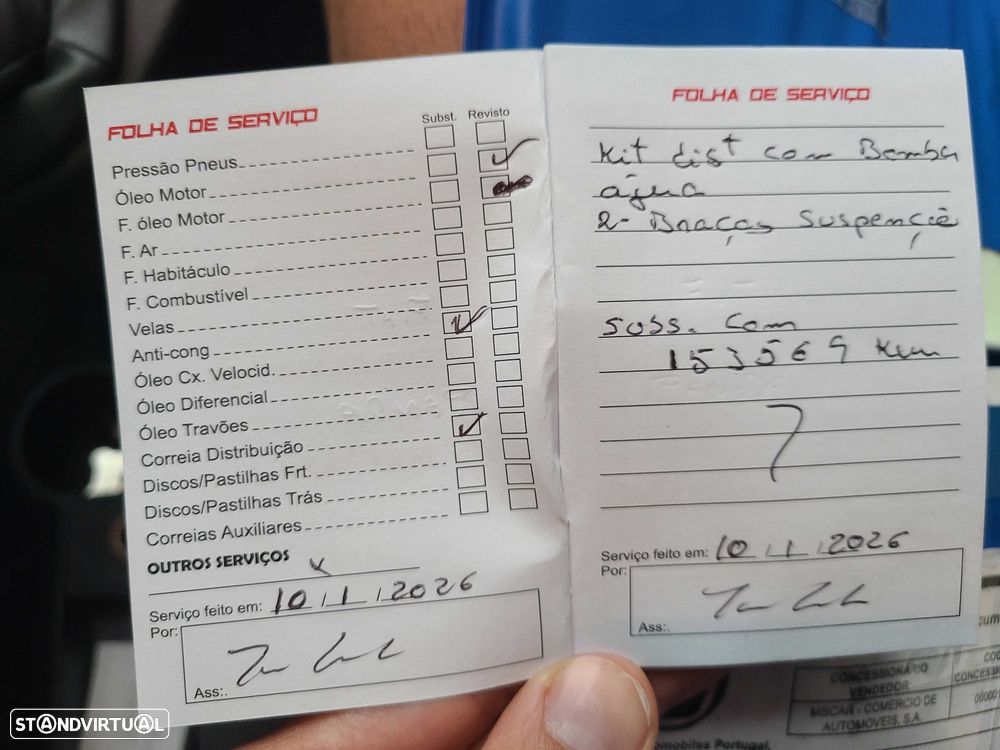 FOLHA DE SERVIÇO
Subst. Revisto
Pressão Pneus
Óleo Motor
F. óleo Motor
F. Ar
F. Habitáculo
F. Combustível
Velas
Anti-cong
Óleo Cx. Velocid.
Óleo Diferencial
Óleo Travões
Correia Distribuição
Discos/Pastilhas Frt.
Discos/Pastilhas Trás
Correias Auxiliares
OUTROS SERVIÇOS
Serviço feito em: 10 / 1 / 2026
Por:
Ass:.
FOLHA DE SERVIÇO
Kit dist com Bomba
água
2- Braços Suspenção
Subs. Com
153569 Km
Serviço feito em: 10 / 1 / 2026
Por:
Ass:.
CONCESSIONÁRIO
VENDEDOR
MSCAR - COMERCIO DE
AUTOMOVEIS, S.A.
Portugal
STANDVIRTUAL